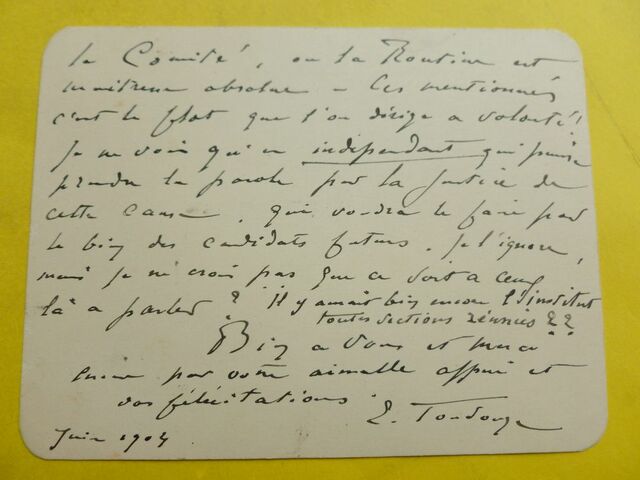 le Comité, ou la Routine est
maîtresse absolue - Les mentionnés
c'est le flot que l'on dirige a volonté!
Je ne vois qu'un indépendant qui puisse
prendre la parole par la justice de
cette cause. qui voudra le faire par
le bien des candidats futurs. Je l'ignore,
mais je ne crois pas que ce soit a ceux
là a parler? Il y aurait bien encore l'institut
toutes sections réunies ??
Bien a Vous et merci
encore par votre aimable appui et
vos félicitations.
E. Toudouze
Juin 1904